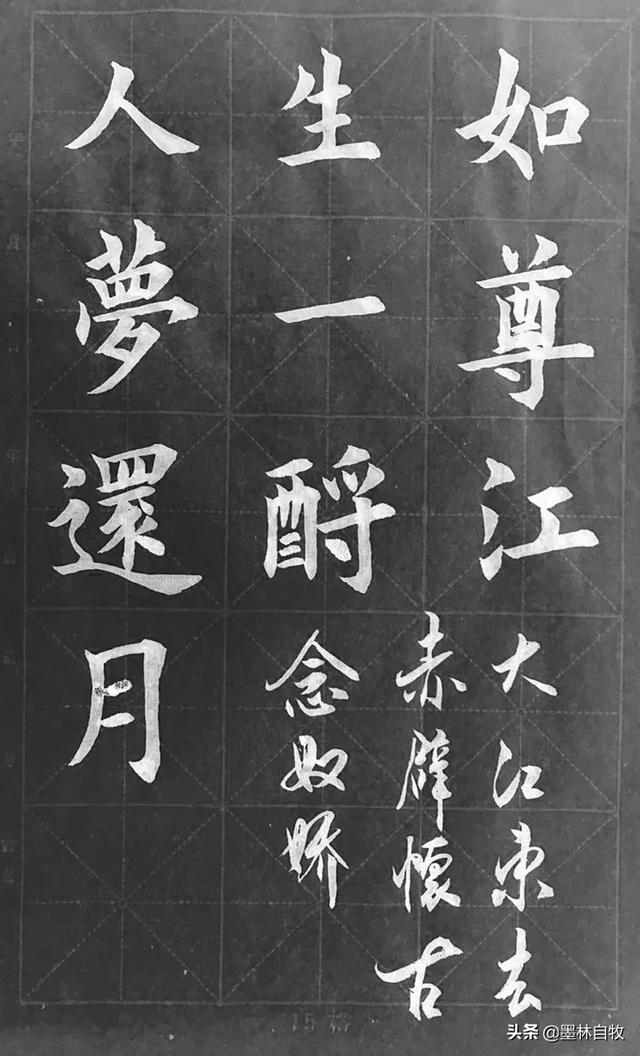 人生如
夢一尊
還酹江
月
念奴嬌
赤壁懷古
大江東去
15格
头条 @墨林自牧